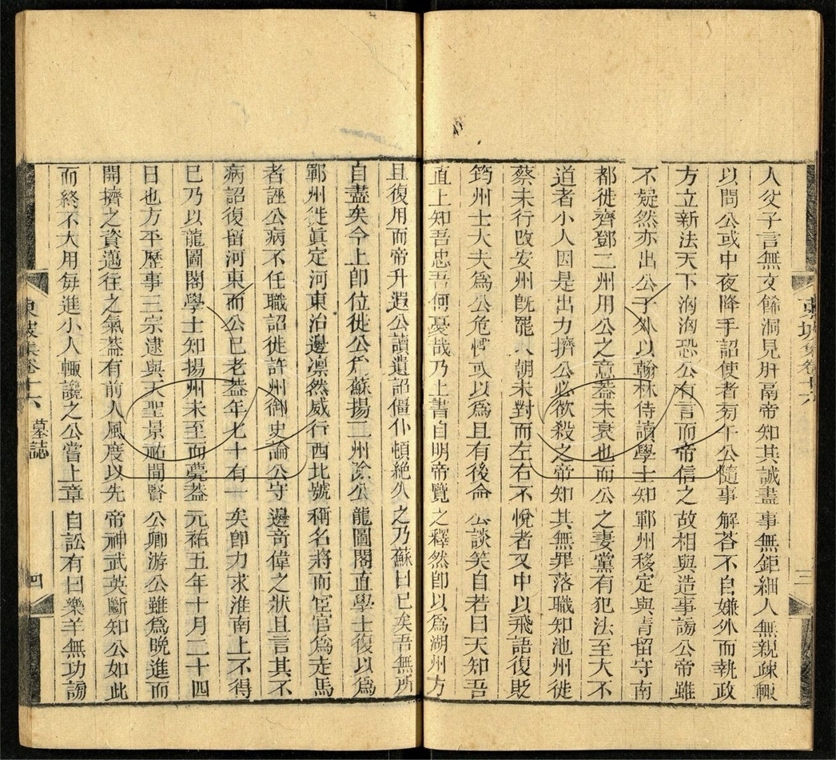 人父子言無文飾洞見肝鬲帝知其誠盡事無鉅細人無親疎輒
以問公或中夜降手詔使者旁午公隨事解答不自嫌外而執政
方立新法天下洶洶恐公有言而帝信之故相與造事謗公帝雖
不疑然亦出公于外以翰林侍讀學士知鄆州移定與青留守南
都徙齊鄧二州用公之意蓋未衰也而公之妻黨有犯法至大不
道者小人因是出力擠公必欲殺之帝知其無罪落職知池州徙
蔡未行改安州旣罷入朝未對而左右不悅者又中以飛語復貶
筠州士大夫爲公危慄或以爲且有後命公談笑自若曰天知吾
直上知吾忠吾何憂哉乃上書自明帝覽之釋然卽以爲湖州方
且復用而帝升遐公讀遺詔僵仆頓絶久之乃蘇曰已矣吾無所
自盡矣今上卽位徙公爲蘇揚二州除公龍圖閣直學士復以爲
鄆州徙眞定河東治邊凛然威行西北號稱名將而宦官爲走馬
者誣公病不任職詔徙許州御史論公守邊奇偉之狀且言其不
病詔復留河東而公已老蓋年七十有一矣卽力求淮南上不得
已乃以龍圖閣學士知揚州未至而薨蓋元祐五年十月二十四
日也方平歷事三宗逮與天聖景祐間賢公卿游公雖爲晚進而
開擠之資邁往之氣蓋有前人風度以先帝神武英斷知公如此
而終不大用每進小人輒讒之公嘗上章自訟有曰樂羊無功謗
東坡集卷十六
三
東坡集卷十六
墓誌
四